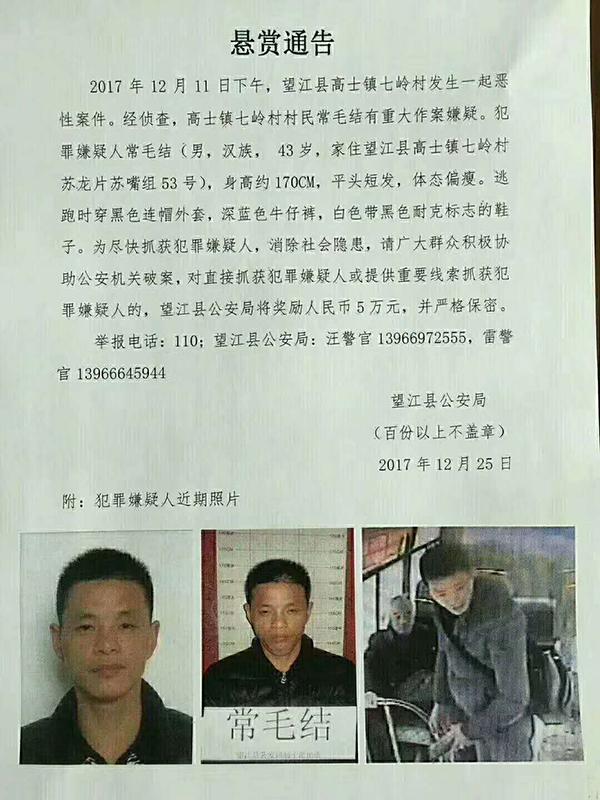 悬赏通告
2017 年 12 月 11 日下午，望江县高士镇七岭村发生一起恶
性案件。经侦查，高士镇七岭村村民常毛结有重大作案嫌疑。犯
罪嫌疑人常毛结（男，汉族， 43 岁，家住望江县高士镇七岭村
苏龙片苏嘴组 53 号），身高约 170CM，平头短发，体态偏瘦。逃
跑时穿黑色连帽外套，深蓝色牛仔裤，白色带黑色耐克标志的鞋
子。为尽快抓获犯罪嫌疑人，消除社会隐患，请广大群众积极协
助公安机关破案，对直接抓获犯罪嫌疑人或提供重要线索抓获犯
罪嫌疑人的，望江县公安局将奖励人民币 5 万元，并严格保密。
举报电话：110；望江县公安局：汪警官 13966972555，雷警
官 13966645944
望江县公安局
（百份以上不盖章）
2017 年 12 月 25 日
附：犯罪嫌疑人近期照片
常毛结